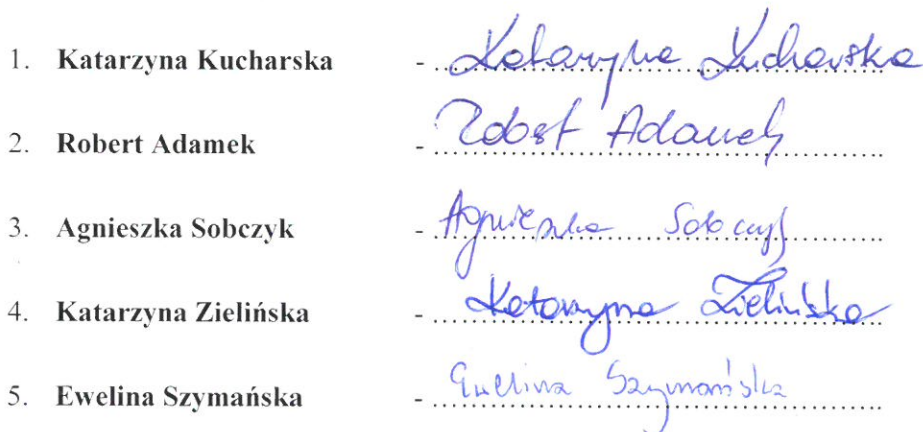 1. Katarzyna Kucharska - Katarzyna Kucharska
2. Robert Adamek - Robert Adamek
3. Agnieszka Sobczyk - Agnieszka Sobczyk
4. Katarzyna Zielińska - Katarzyna Zielińska
5. Ewelina Szymańska - Ewelina Szymańska